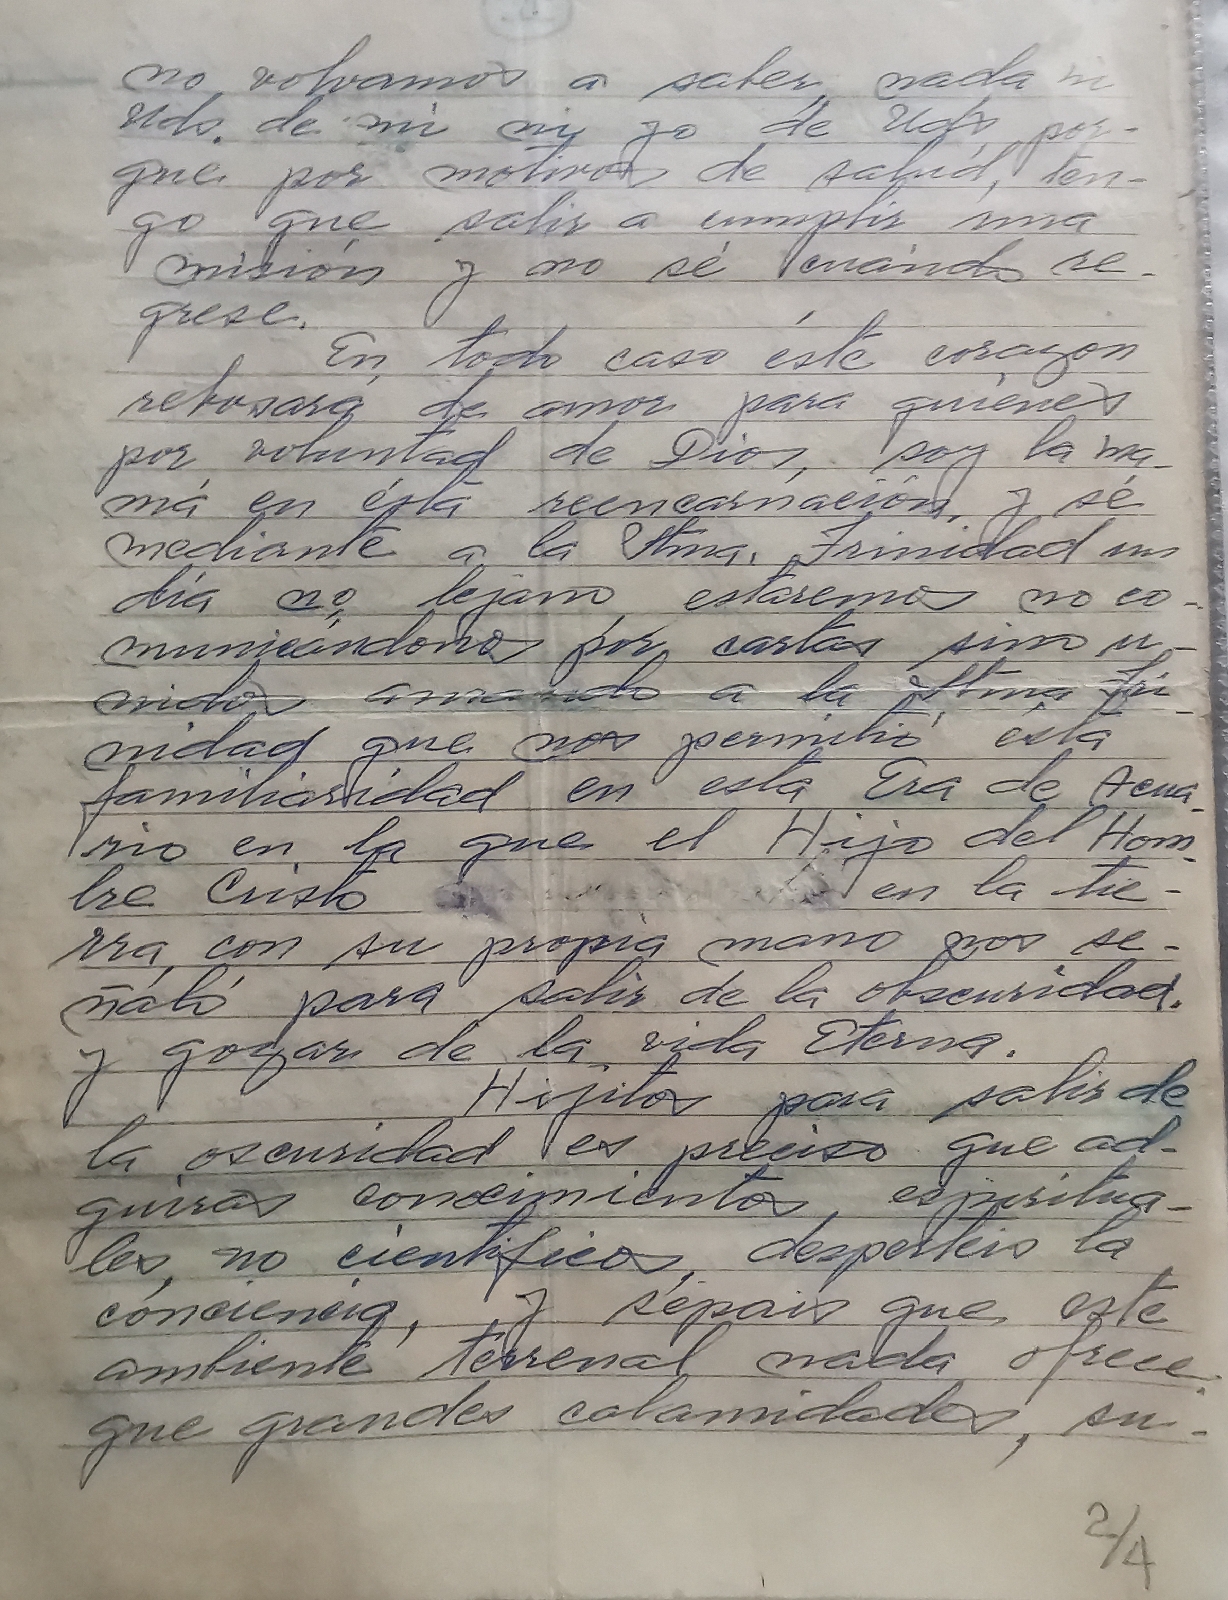 no volvamos a saber nada ni
Uds. de mi ni yo de Uds, por-
que por motivos de salud, ten-
go que salir a cumplir una
misión y no sé cuándo re-
grese.
En todo caso éste corazon
rebosará de amor para quiénes
por voluntad de Dios, soy la ma-
má en ésta reencarnación, y sé
mediante a la Stma. Trinidad un
día no lejano estaremos no co-
municándonos por cartas sino u-
nidos amando a la Stma Tri
nidad que nos permitió ésta
familiaridad en esta Era de Acua-
rio en la que el Hijo del Hom-
bre Cristo en la tie-
rra, con su propia mano nos se-
ñaló para salir de la obscuridad.
y gozar de la vida Eterna.
Hijitos para salir de
la oscuridad es preciso que ad-
quiras conocimientos espiritua-
les, no cientificos, desperteis la
conciencia, y sépais que este
ambiente terrenal nada ofrece
que grandes calamidades, su-
2/4